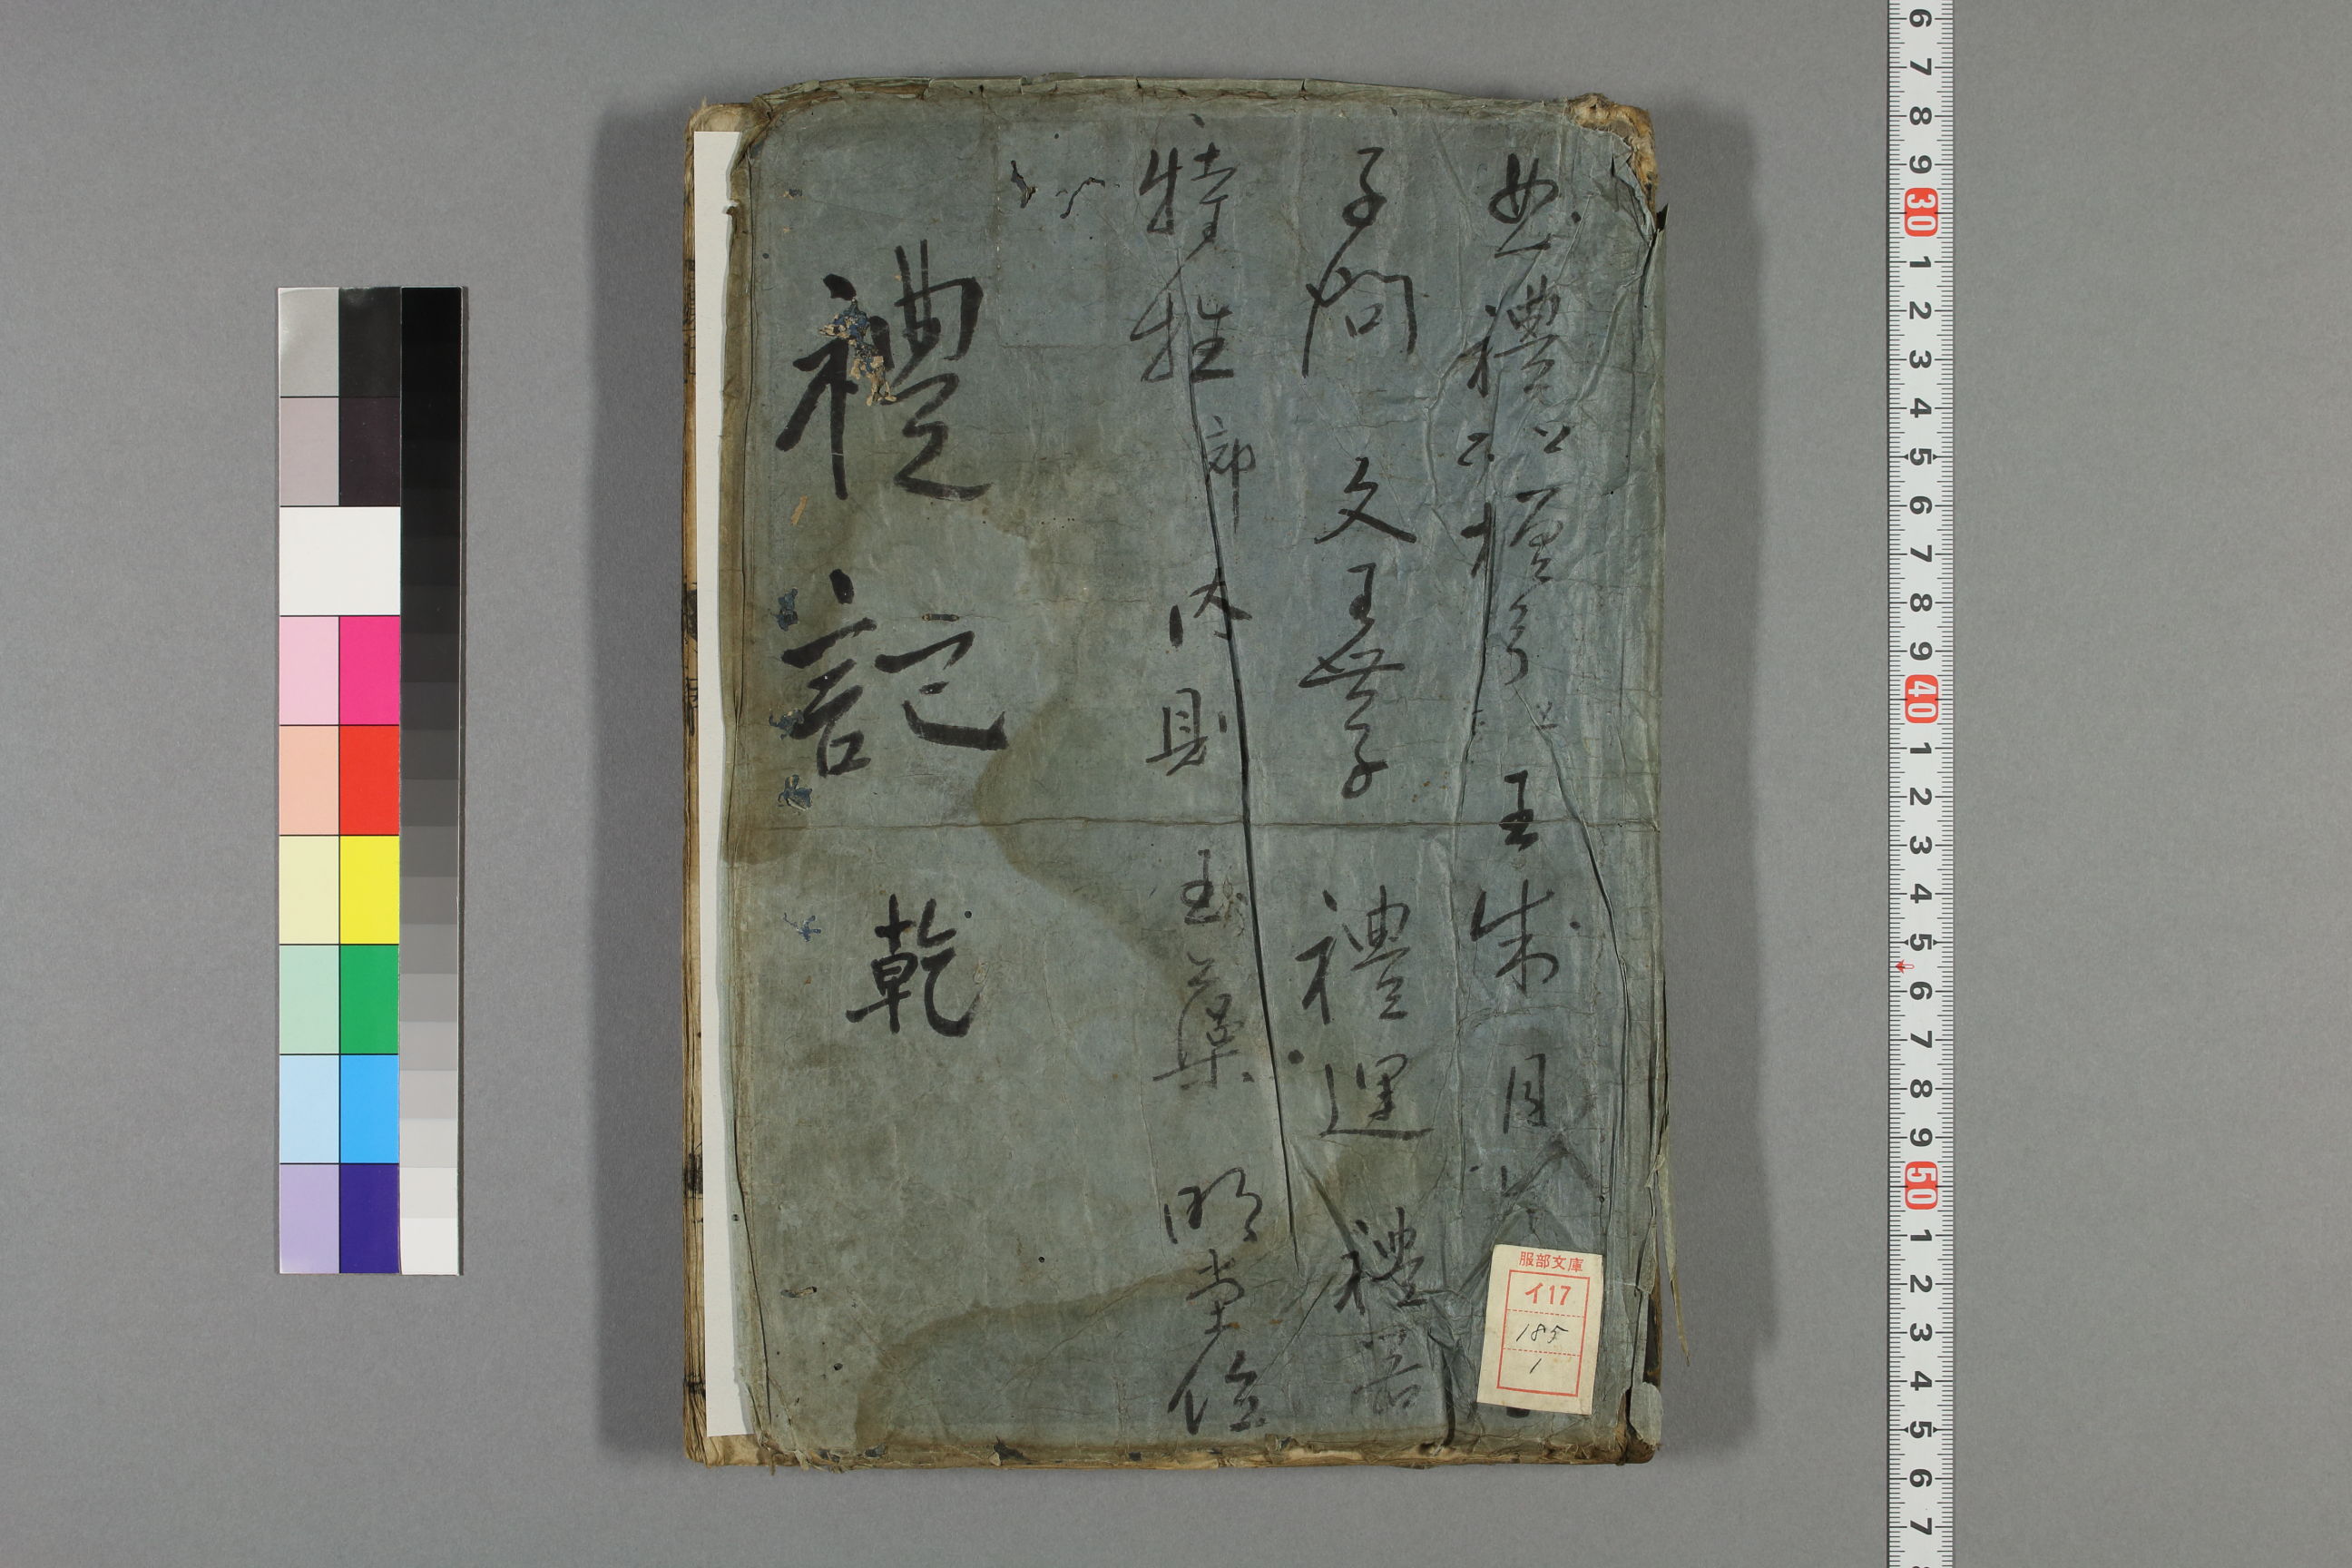 曲禮上下 檀弓上下 王制 月令
子問 文王世子 禮運 禮器
特牲郊 内則 玉藻 明堂位
禮記 乾
服部文庫
イ17
185
1
6 7 8 9 30 1 2 3 4 5 6 7 8 9 40 1 2 3 4 5 6 7 8 9 50 1 2 3 4 5 6 7